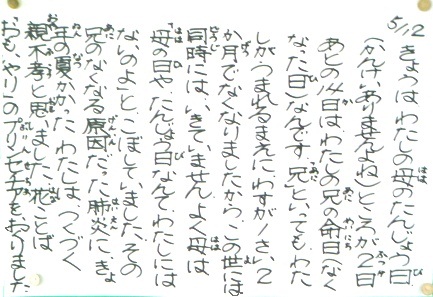 5/12
きょうはわたしの母のたんじょう日
(かんけいありませんよね)ところが2日
あとの14日はわたしの兄の命日(なく
なった日)なんです。兄といってもわた
しがうまれるまえにわずか1さい2
か月でなくなりましたから、この世には
同時には、いきていません。よく母は
「母の日や、たんじょう日なんてわたしには
ないのよ」とこぼしていました。その
兄のなくなる原因だった肺炎に、きょ
年の夏かかったわたしは、つくづく
親不孝と思いました。花ことば
"おもいやり"のプリンセチアをおくりました